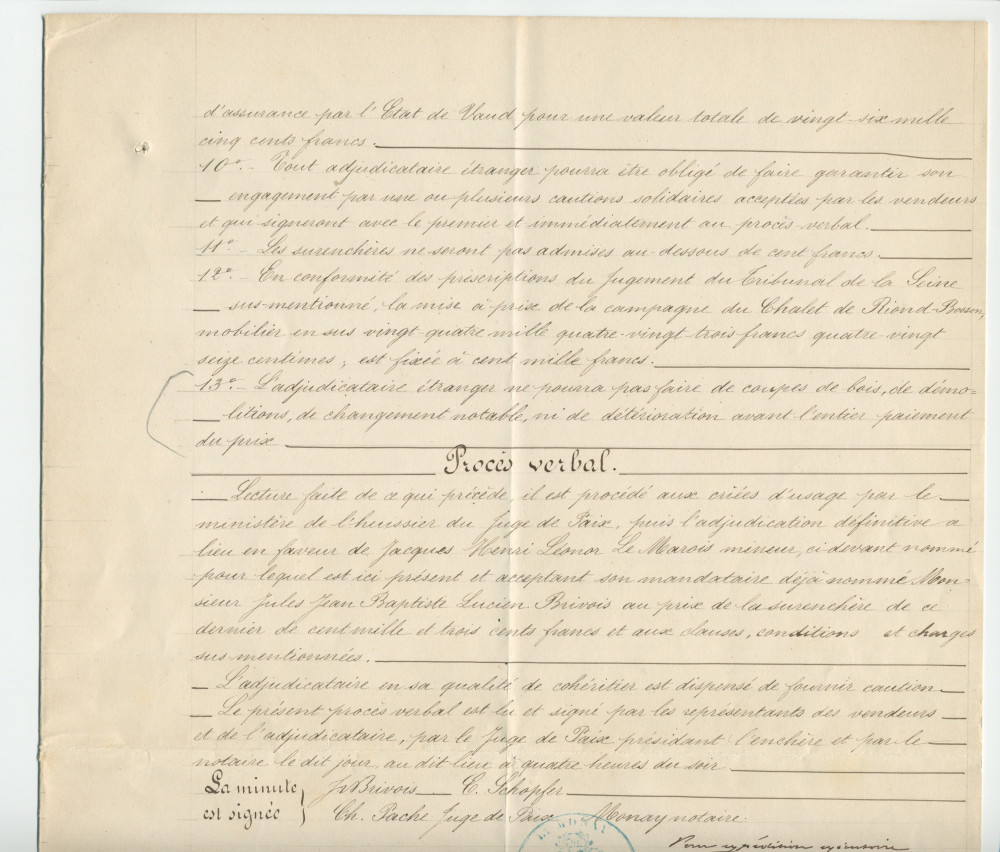 d'assurance par l'Etat de Vaud pour une valeur totale de vingt-six mille
cinq cents francs.
10º.- Tout adjudicataire étranger pourra être obligé de faire garantir son
engagement par une ou plusieurs cautions solidaires acceptées par les vendeurs
et qui signeront avec le premier et immédiatement au procès-verbal.
11º.- Les surenchères ne seront pas admises au-dessous de cent francs.
12º.- En conformité des prescriptions du Jugement du Tribunal de la Seine
sus-mentionné, la mise à prix de la campagne du Chalet de Riond-Bosson,
mobilier en sus vingt-quatre mille quatre-vingt-trois francs quatre vingt
seize centimes, est fixée à cent mille francs.
13º.- L'adjudicataire étranger ne pourra pas faire de coupes de bois, de démo=
litions, de changement notable, ni de détérioration avant l'entier paiement
du prix
Procès verbal.
Lecture faite de ce qui précède, il est procédé aux criées d'usage par le
ministère de l'huissier du Juge de Paix, puis l'adjudication définitive a
lieu en faveur de Jacques Henri Léonor Le Marois mineur, ci-devant nommé
pour lequel est ici présent et acceptant son mandataire déjà nommé Mon-
sieur Jules Jean Baptiste Lucien Brivois au prix de la surenchère de ce
dernier de cent mille et trois cents francs et aux clauses, conditions et charges
sus-mentionnées.
L'adjudicataire en sa qualité de cohéritier est dispensé de fournir caution
Le présent procès verbal est lu et signé par les représentants des vendeurs
et de l'adjudicataire, par le Juge de Paix présidant l'enchère et par le
notaire le dit jour, au dit lieu à quatre heures du soir
La minute est signée } J. Brivois C. Schopfer
Ch. Pache Juge de Paix Monay notaire.
MONAY
Pour expédition exécutoire